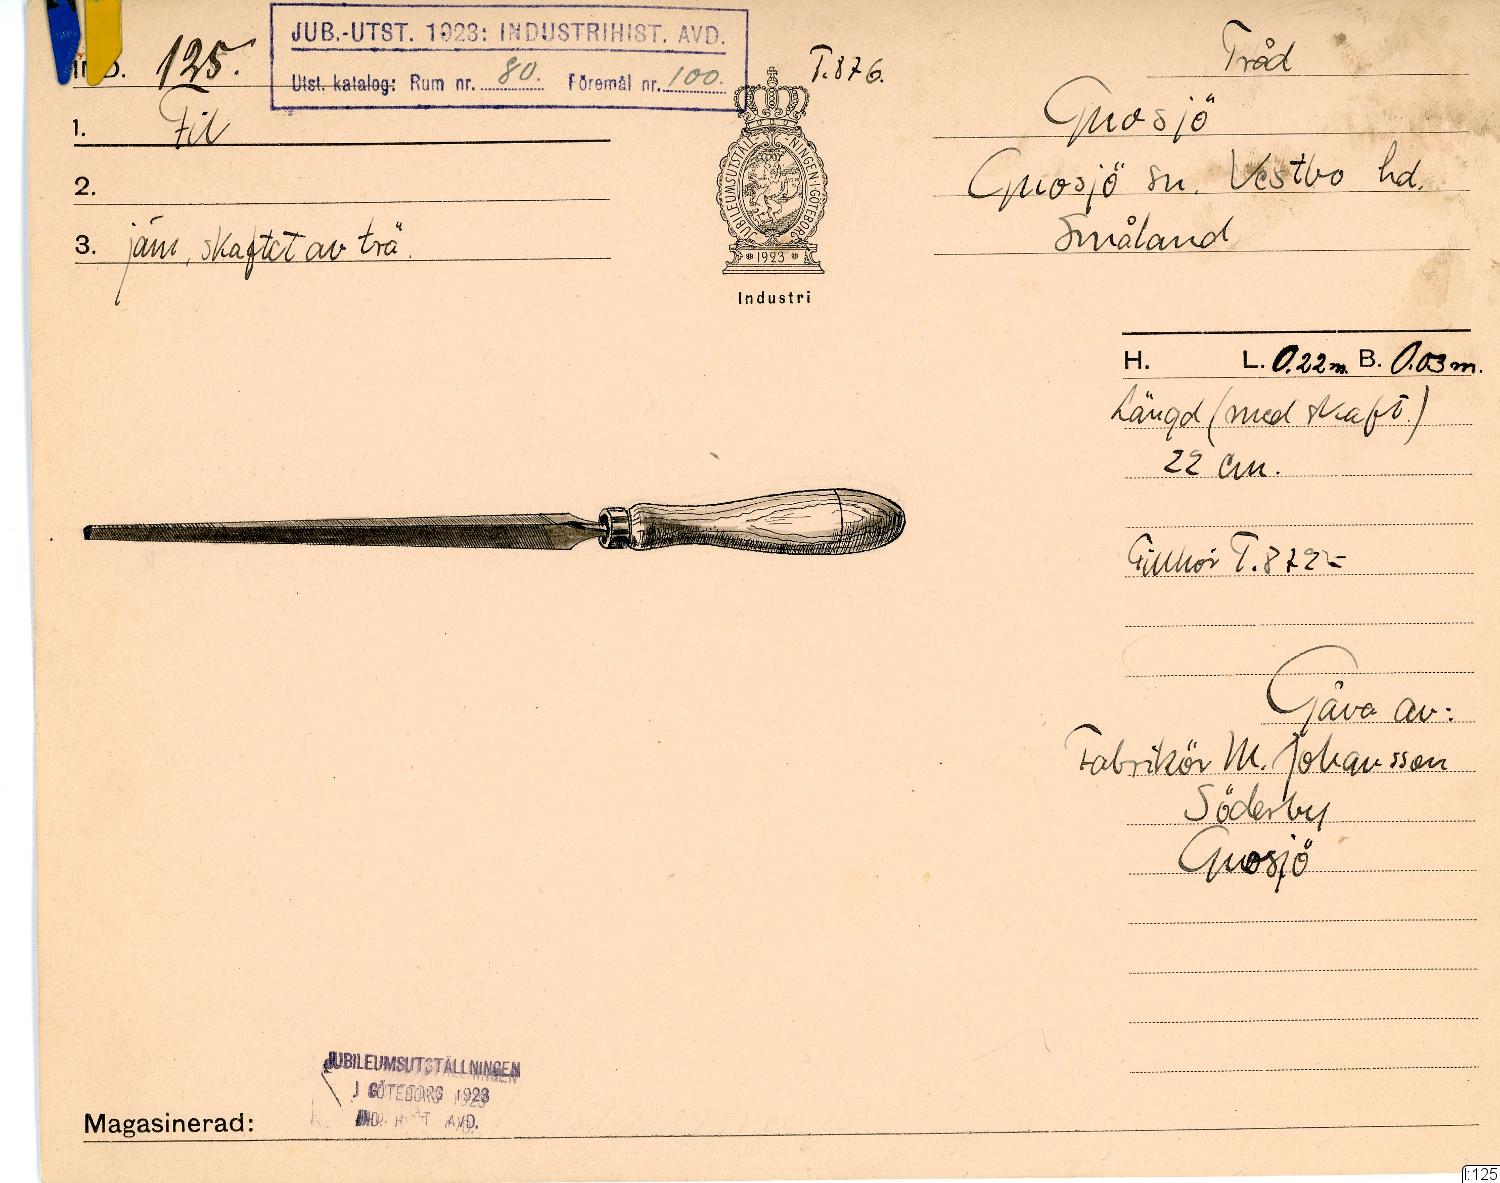 JUB.-UTST. 1923: INDUSTRIHIST. AVD.
Utst. katalog: Rum nr. 80. Föremål nr. 100.
IND. 125.
T.876.
Tråd
1. Fil
Gnosjö
2.
Gnosjö sn. Vestbo hd.
3. järn, skaftet av trä.
Småland
JUBILEUMSUTSTÄLLNINGEN·I·GÖTEBORG
1923
Industri
H. L. 0.22 m. B. 0.03 m.
Längd (med skaft.)
22 cm.
Tillhör T.872
Gåva av:
Fabrikör M. Johansson
Söderby
Gnosjö
JUBILEUMSUTSTÄLLNINGEN
I GÖTEBORG 1923
IND. HIST. AVD.
Magasinerad:
I:125